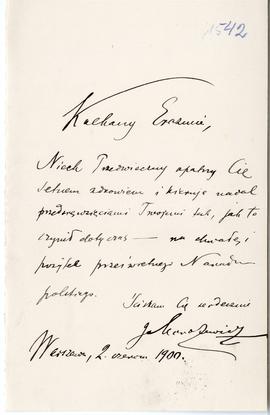 1542
Kochany Erazmie,
Niech Przedwieczny opatrzy Cię
setnem zdrowiem i kieruje nadal
przedsięwzięciami Twojemi tak, jak to
czynił dotyczas — na chwałę i
pożytek prześwietnego Narodu
polskiego.
Ściskam Cię serdecznie
Warszawa, 2. czerwca 1900.